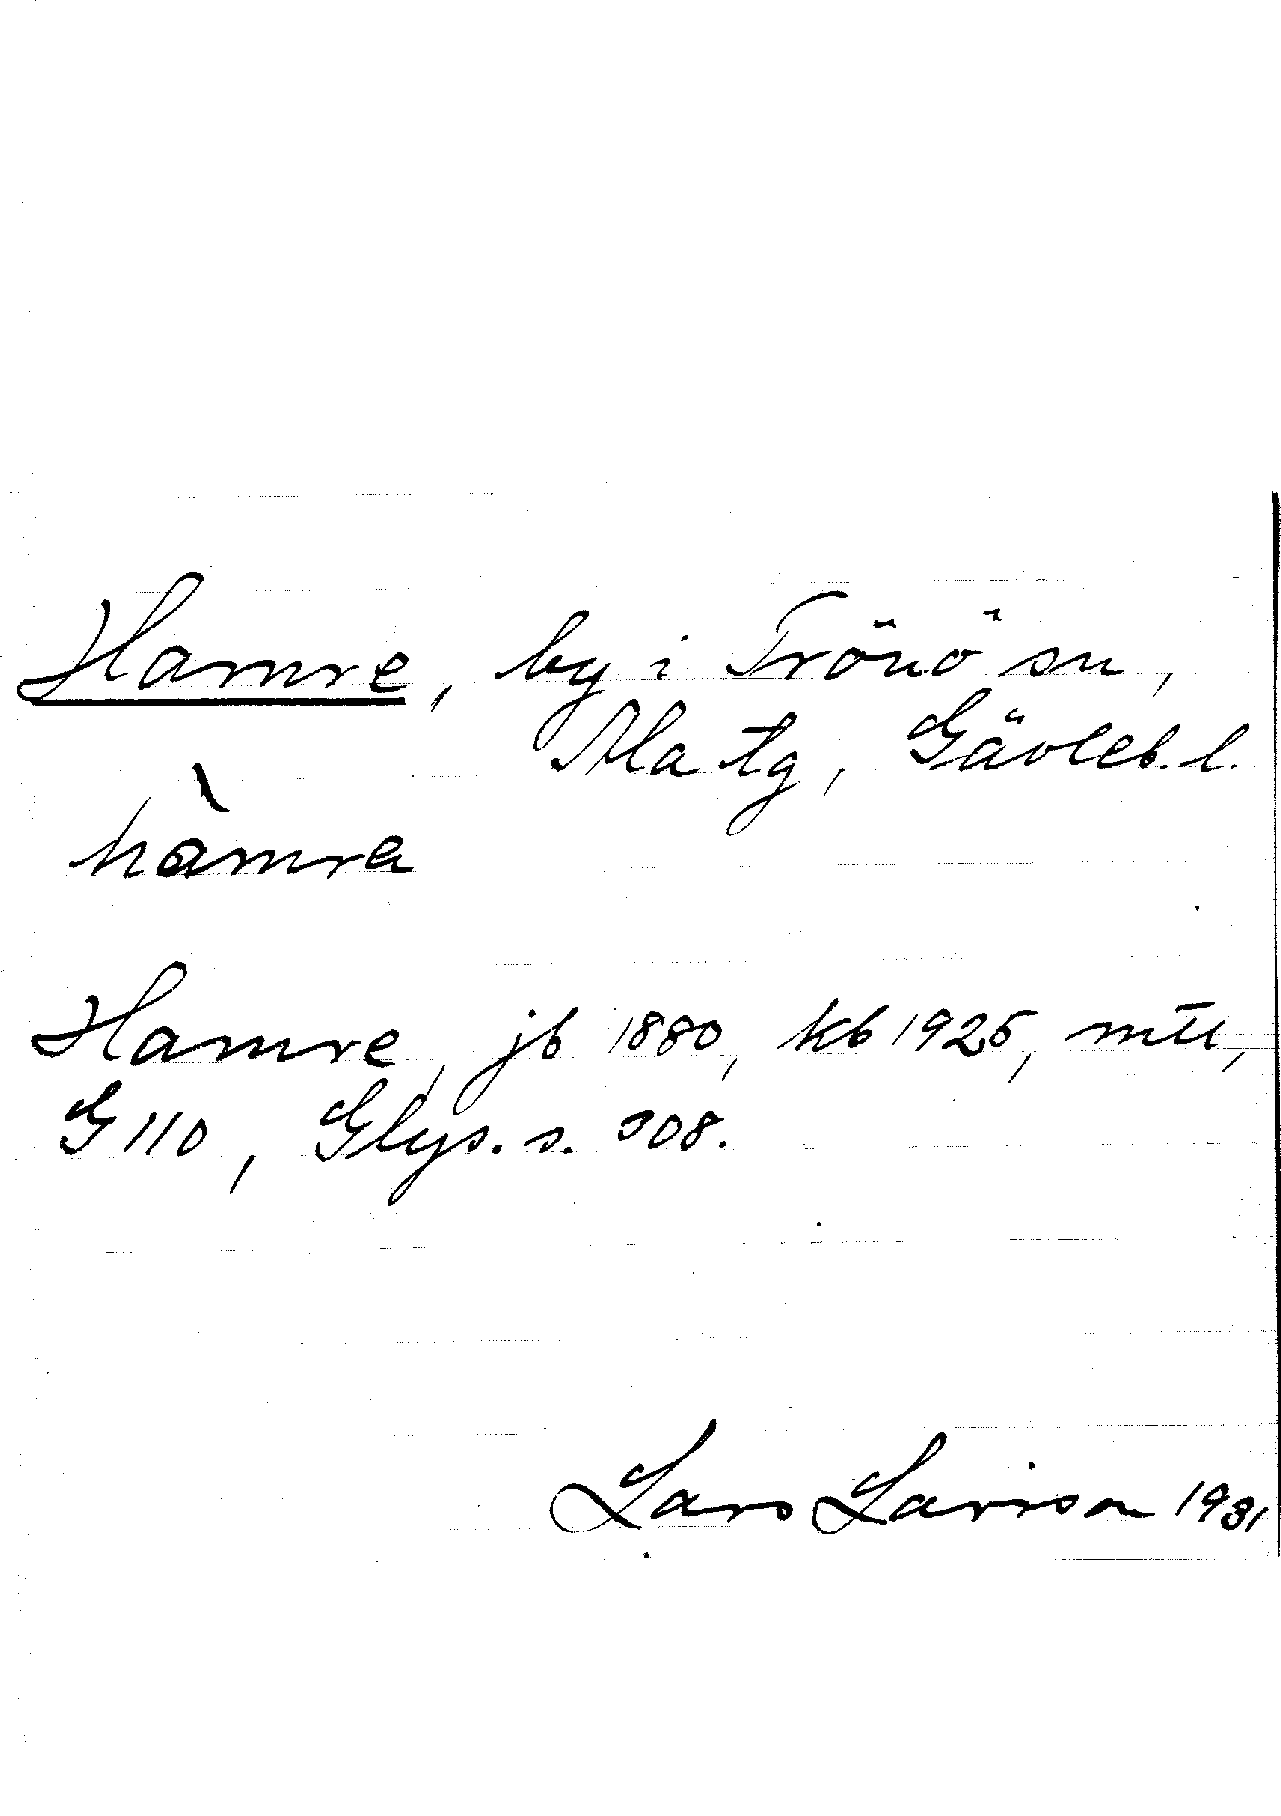 Hamre, by i Trönö sn,
Ala tg, Gävleb. l.
hàmra
Hamre, jb 1880, kb 1925, mtl,
G 110, Glys. s. 308.
Lars Larsson 1931